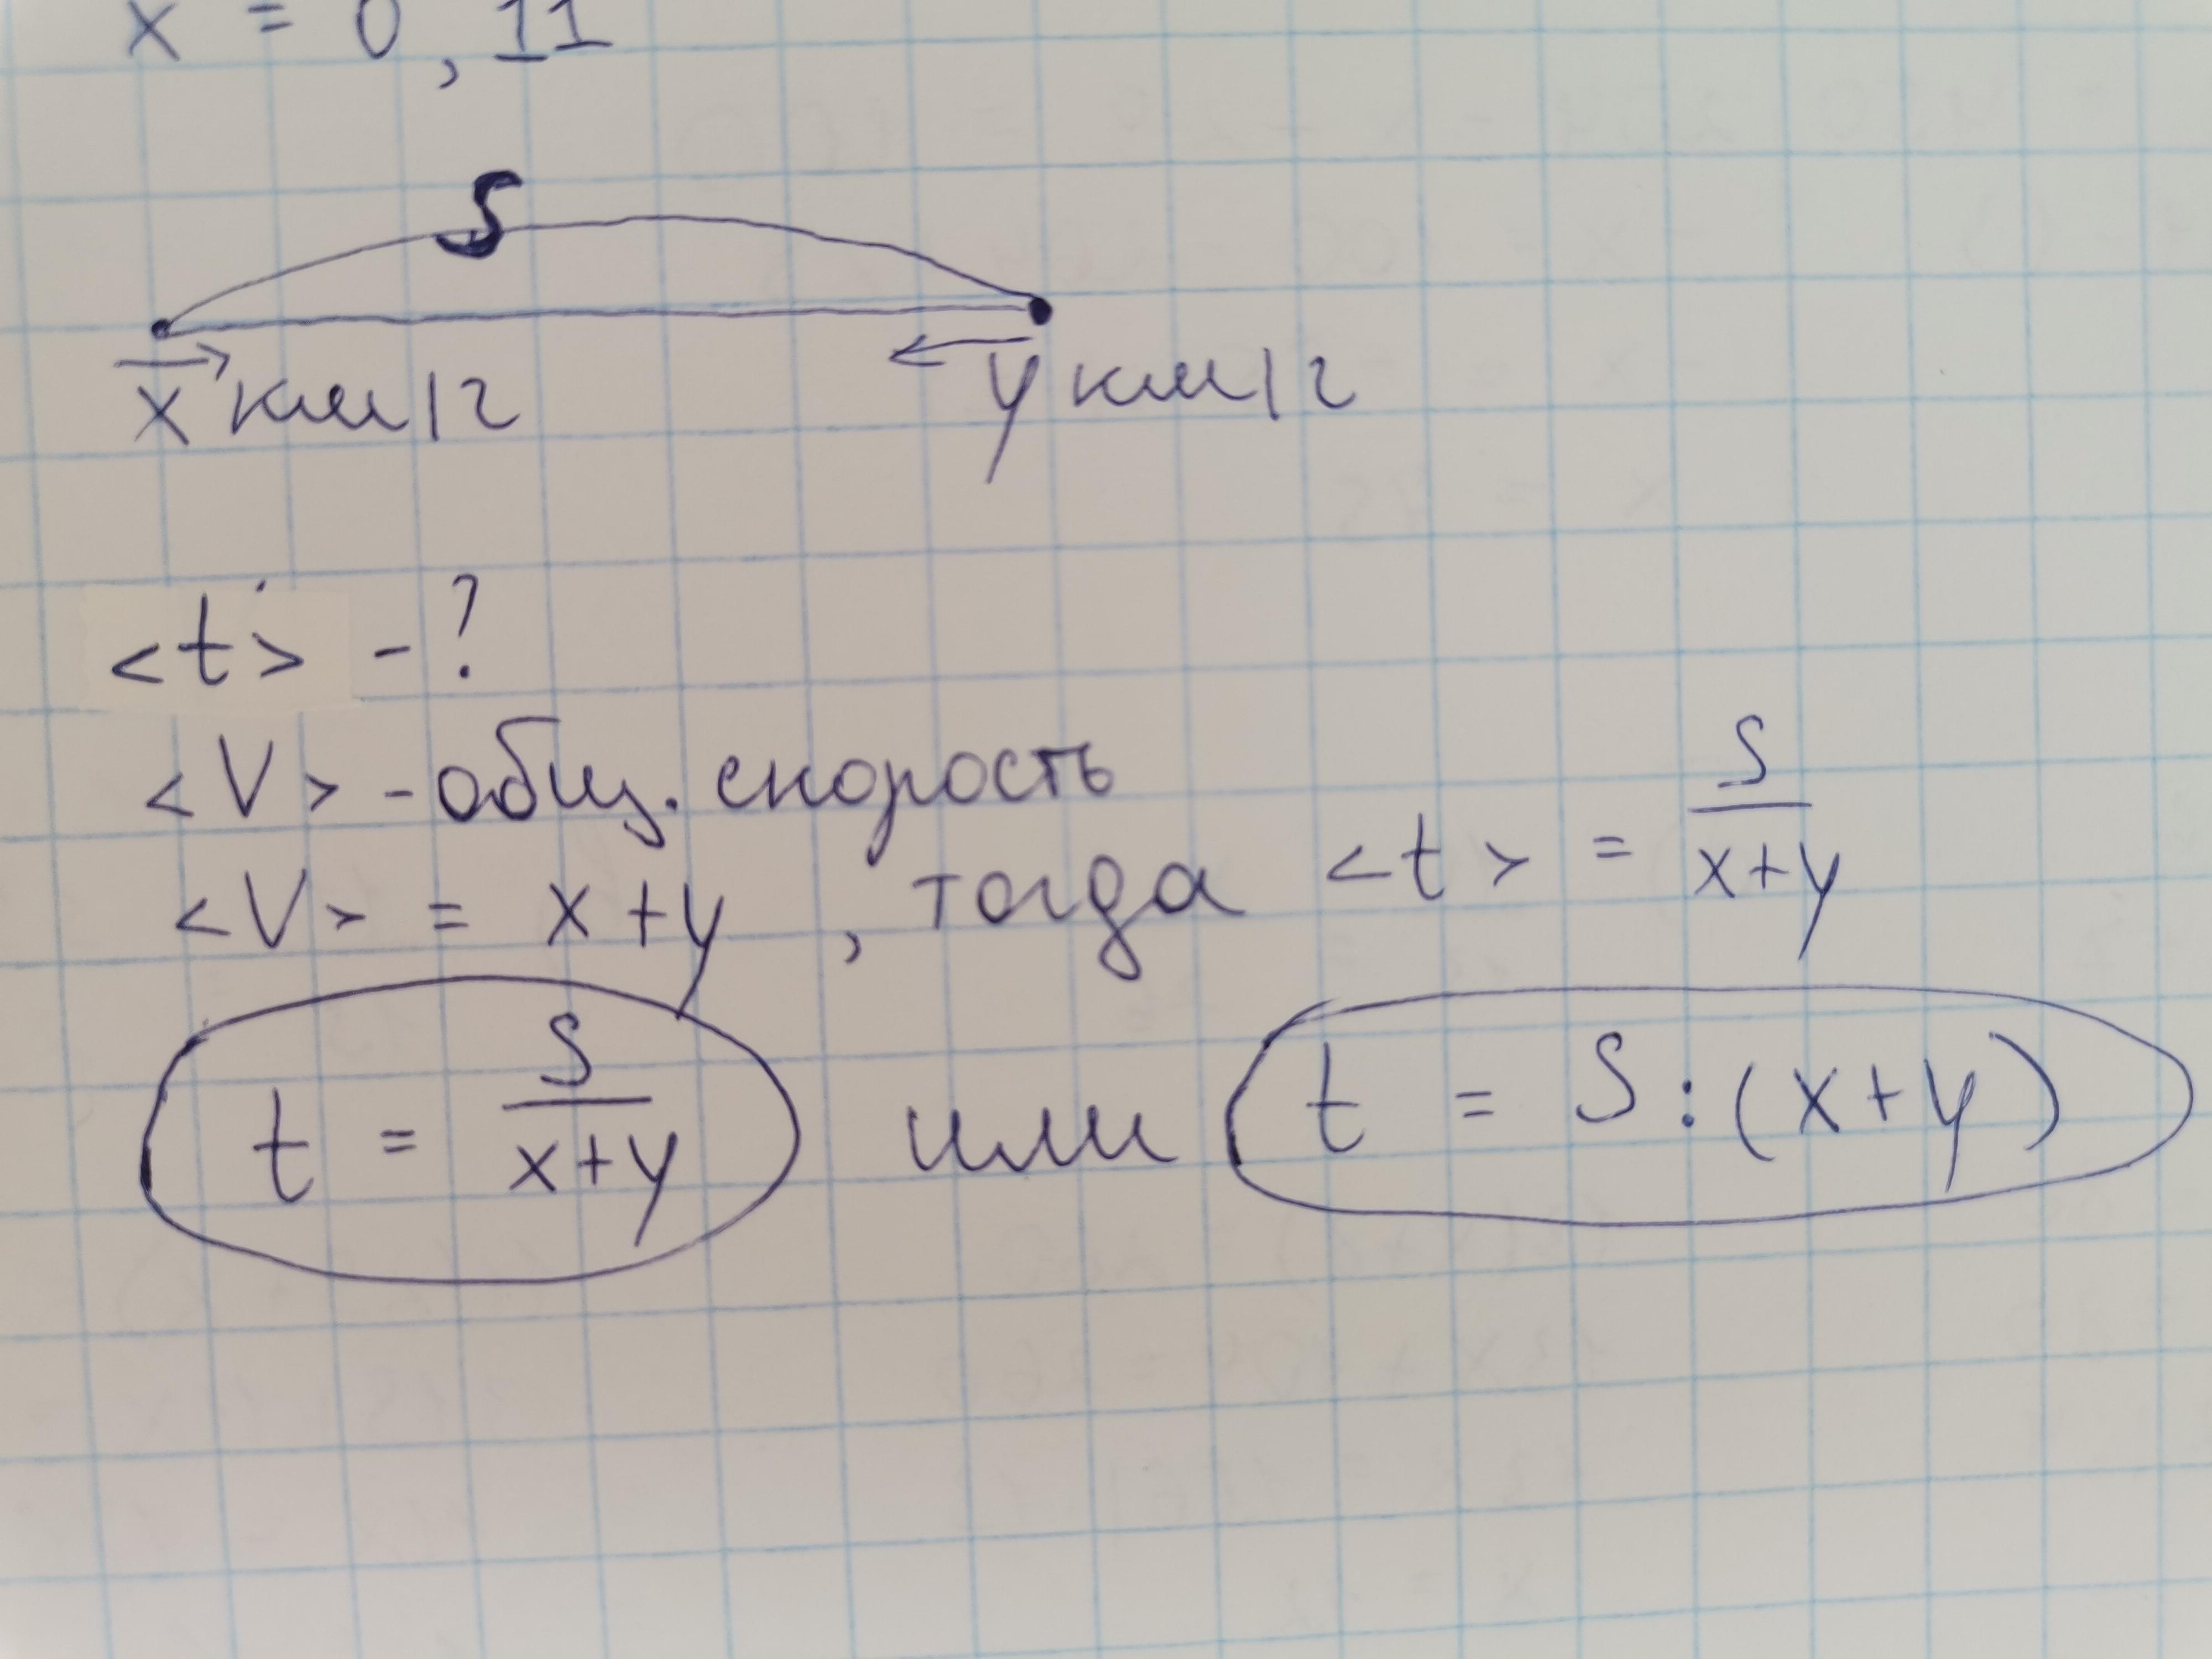 x = 0,11
S
x км/г
y км/г
<t> - ?
<V> - общ. скорость
<V> = x + y, тогда <t> = S/(x+y)
t = S/(x+y) или t = S : (x+y)